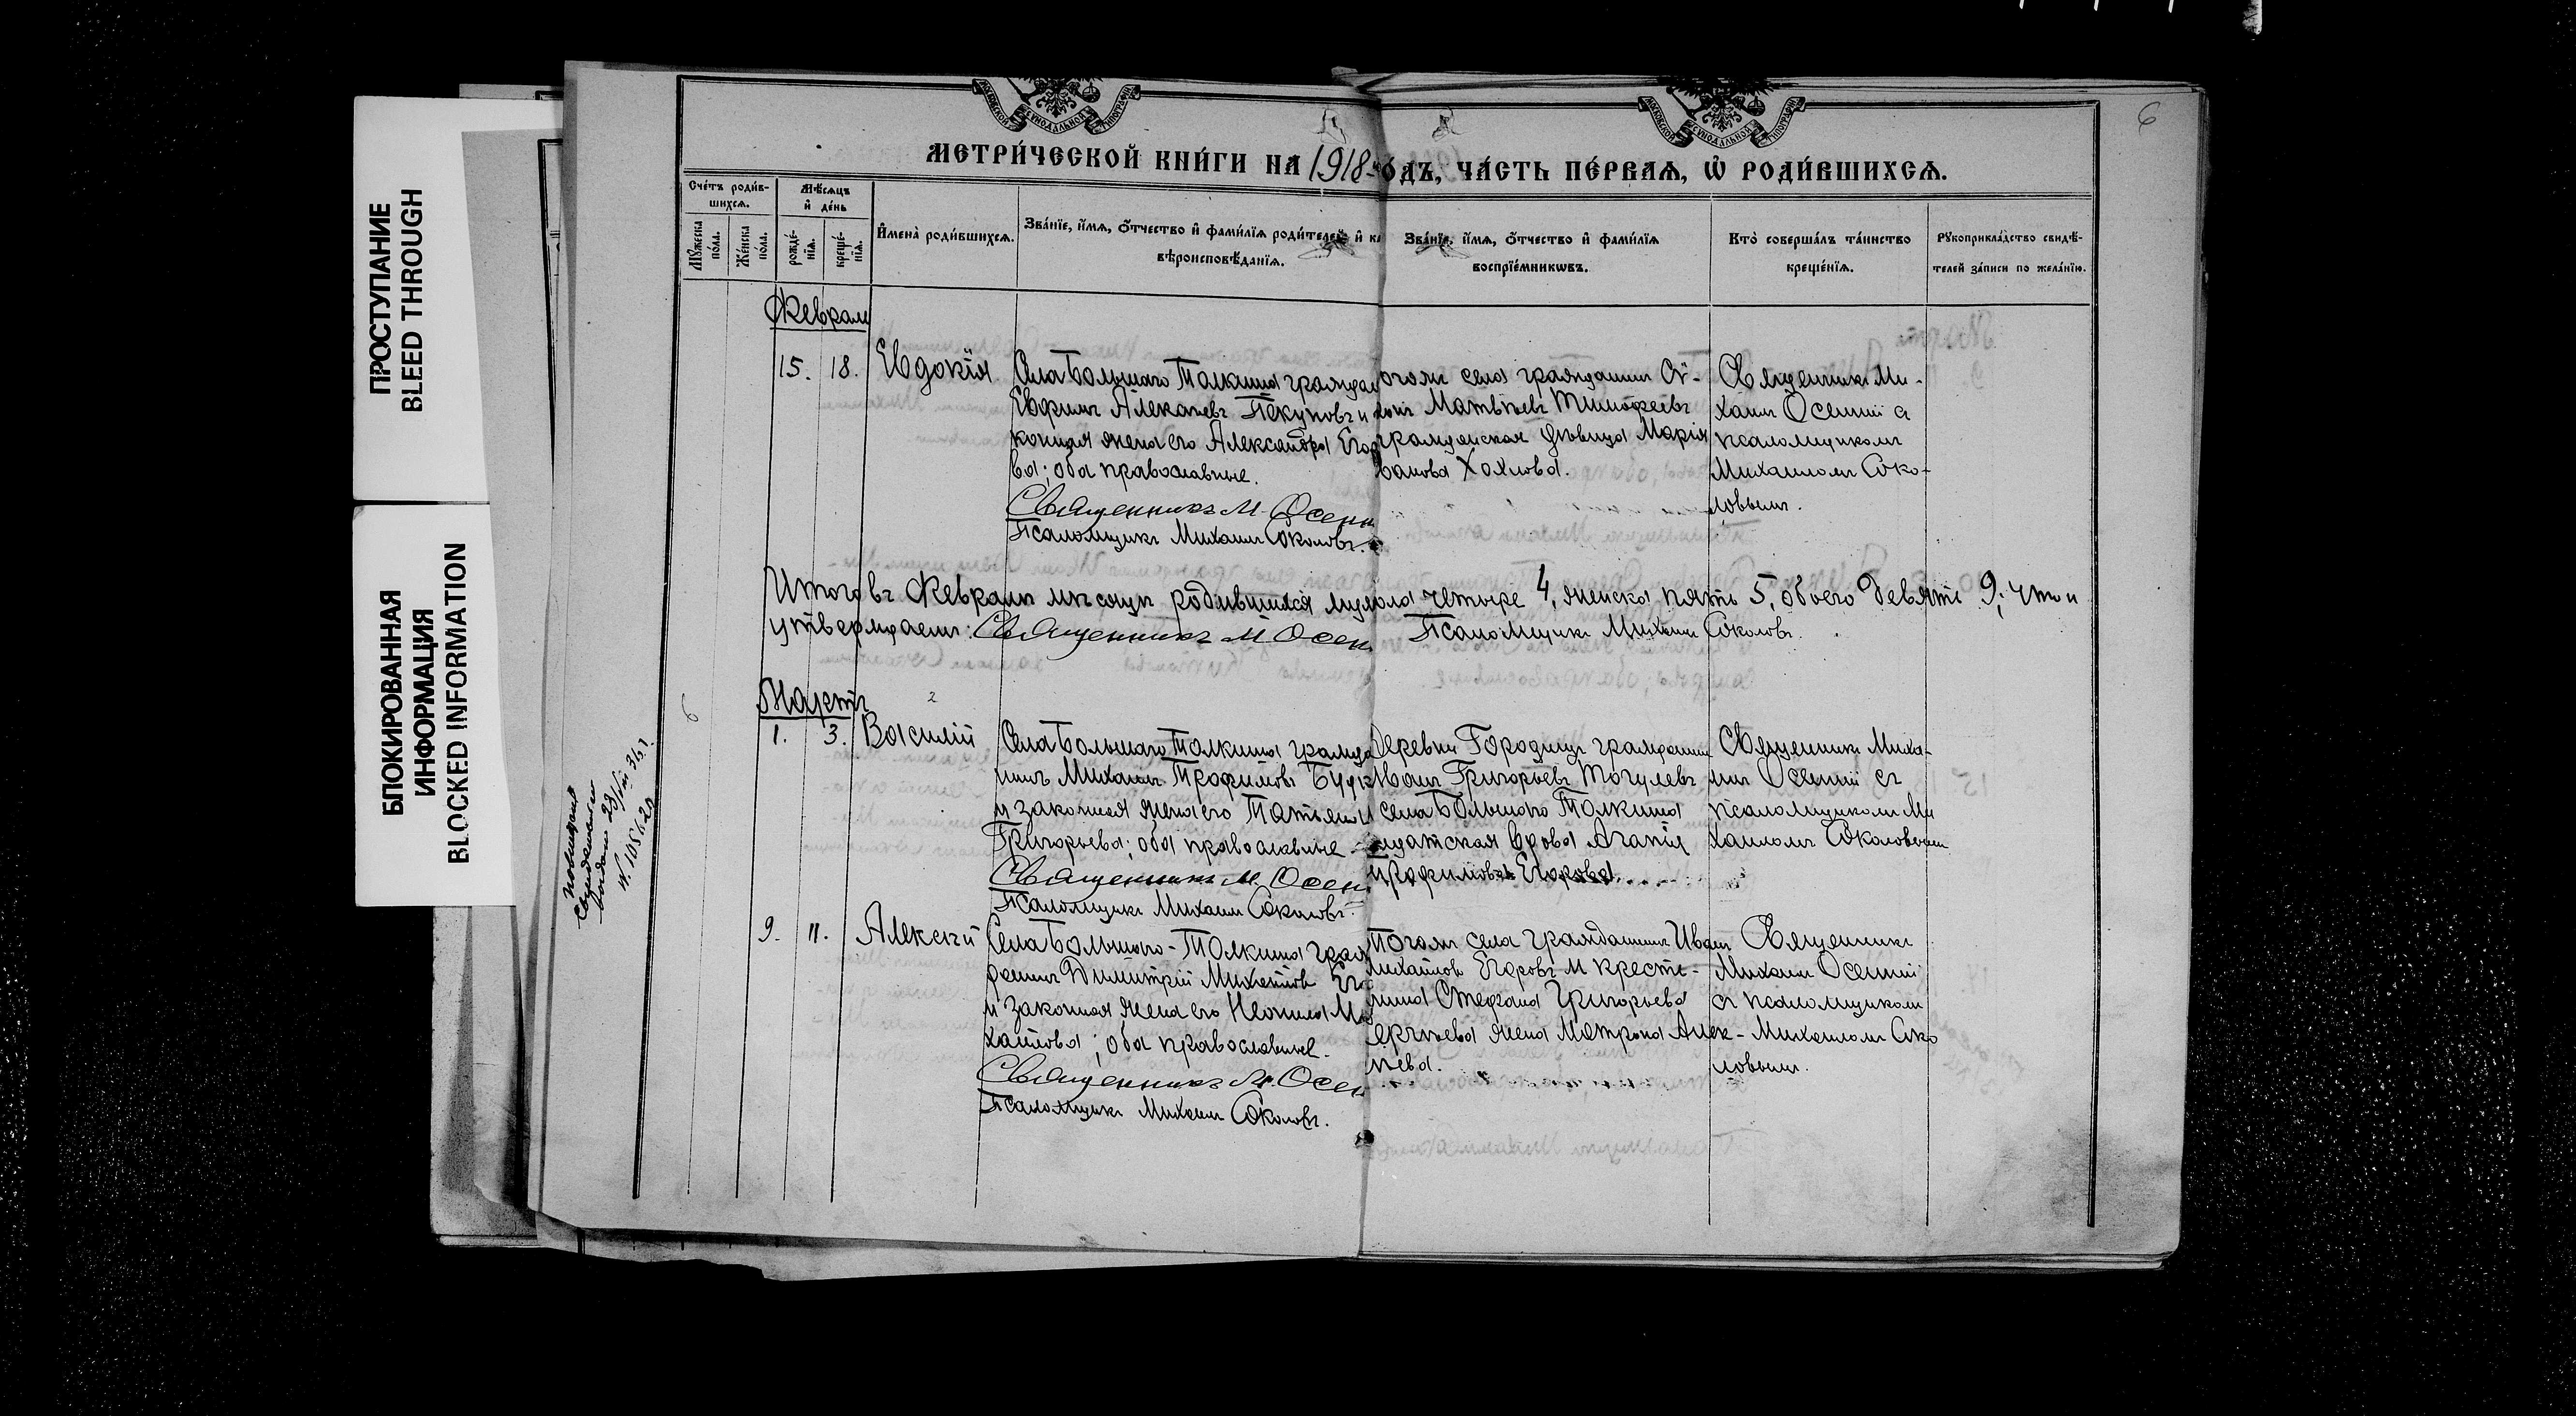 ПРОСТУПАНИЕ
BLEED THROUGH
БЛОКИРОВАННАЯ
ИНФОРМАЦИЯ
BLOCKED INFORMATION
6
МОСКОВСКОЙ СѴНОДАЛЬНОЙ ТИПОГРАФІИ
МОСКОВСКОЙ СѴНОДАЛЬНОЙ ТИПОГРАФІИ
МЕТРИ́ЧЕСКОЙ КНИ́ГИ НА 1918 го́дъ, ЧА́СТЬ ПЕ́РВАѦ, Ѡ҆ РОДИ́ВШИХСѦ.
Сче́тъ роди́в-
шихсѧ.
Мꙋ́жеска
по́ла.
Же́нска
по́ла.
Мѣ́сѧцъ
и҆ де́нь
рожде́-
нїѧ.
креще́-
нїѧ.
И҆мена̀ роди́вшихсѧ.
Зва́нїе, и҆́мѧ, ѻ҆́тчество и҆ фами́лїѧ роди́телей, и҆ ка
вѣроисповѣ́данїѧ.
Зва́нїе, и҆́мѧ, ѻ҆́тчество и҆ фами́лїѧ
воспрїе́мникѡвъ.
Кто̀ соверша́лъ та́инство
креще́нїѧ.
Рꙋкоприкла́дство свидѣ́-
телей за́писи по жела́нїю.
Февраль
15. 18. Евдокія
Села Большаго Толкиша граждан
Евфимъ Алексѣевъ Пекуновъ и
конная жена его Александра Егор
ва; оба православные.
Священникъ М. Осенн
Псаломщикъ Михаилъ Соколовъ.
огоже села гражданинъ
Матвѣевъ Тимофеевъ
гражданская дѣвица Марія
ванова Хохлова.
Священникъ Ми-
хаилъ Осенній с
псаломщикомъ
Михаиломъ Соко-
ловымъ.
Итого въ Февралѣ мѣсяцѣ родившихся муж пола четыре 4, женска пять 5, обоего девять 9; что и
утверждаемъ: Священникъ М. Осен Псаломщикъ Михаилъ Соколовъ.
Мартъ
1. 3. Василій
Села Большаго Толкиша гражда
нинъ Михаилъ Трофимовъ
и законная жена его Татьяна
Григорьева; оба православные
Священникъ М. Осен
Псаломщикъ Михаилъ Соколовъ.
Деревни Городищъ гражданинъ
Иванъ Григорьевъ
села Большаго Толкиша
вдова Агапія
Трофимова Егорова.
Священникъ Миха-
илъ Осенній съ
псаломщикомъ Ми
хаиломъ Соколовымъ
9. 11. Алексѣй
Села Большаго-Толкиша граж
данинъ Димитрій Михайловъ Его
и законная жена его Неонила Ми
хайлова; оба православные.
Священникъ М. Осен
Псаломщикъ Михаилъ Соколовъ.
Тогоже села гражданинъ Иванъ
Михайловъ Егоровъ и крестья-
нина Стефана Григорьева
Сергѣева жена Матрона Алек-
ѣева.
Священникъ
Михаилъ Осенній
съ псаломщикомъ
Михаиломъ Соко
ловымъ.